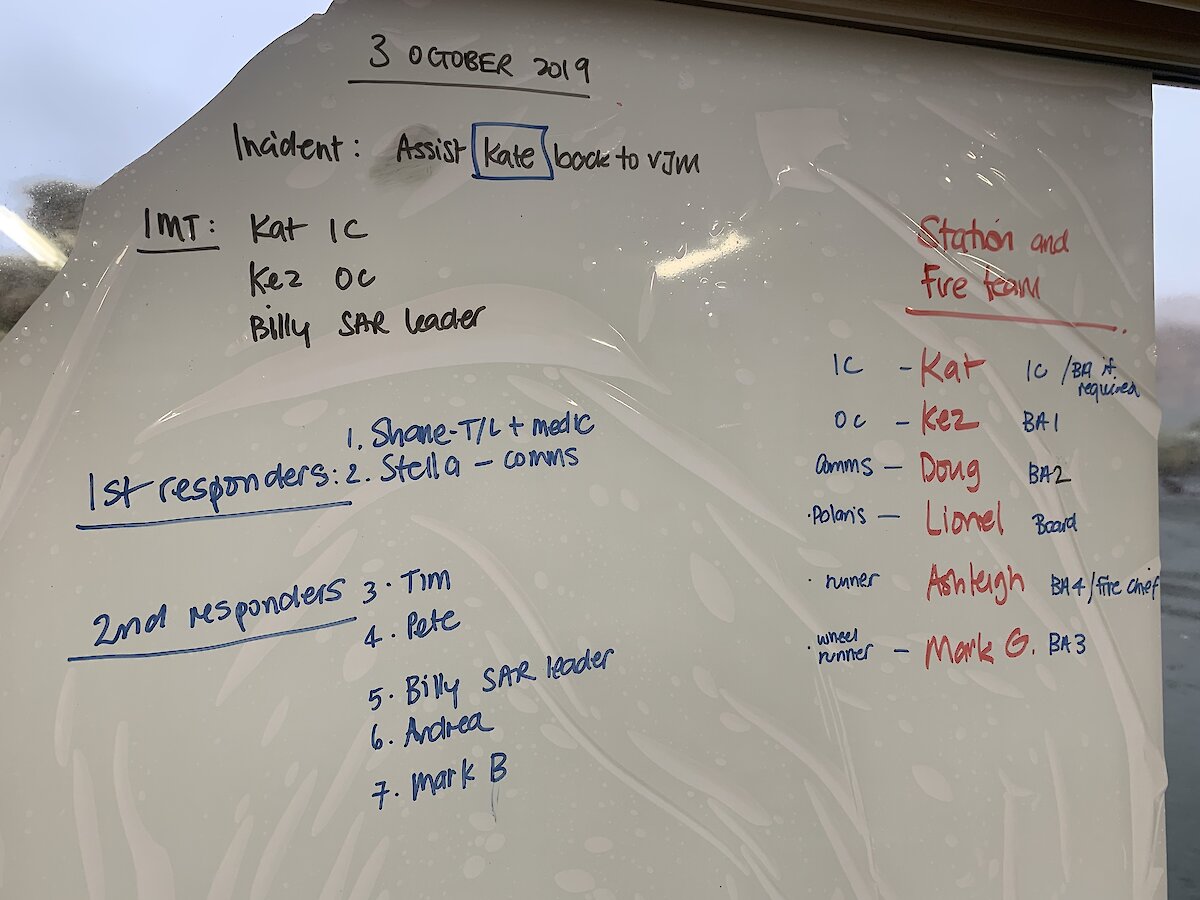 3 OCTOBER 2019
Incident: Assist Kate back to VJM
IMT: Kat IC
Kez OC
Billy SAR leader
1st responders: 1. Shane - T/L + medic
2. Stella - comms
2nd responders 3. Tim
4. Pete
5. Billy SAR leader
6. Andrea
7. Mark B
Station and
Fire team
IC - Kat IC / BA if required
OC - Kez BA1
Comms - Doug BA2
Polaris - Lionel Board
runner Ashleigh BA4/fire chief
wheel runner - Mark G. BA3